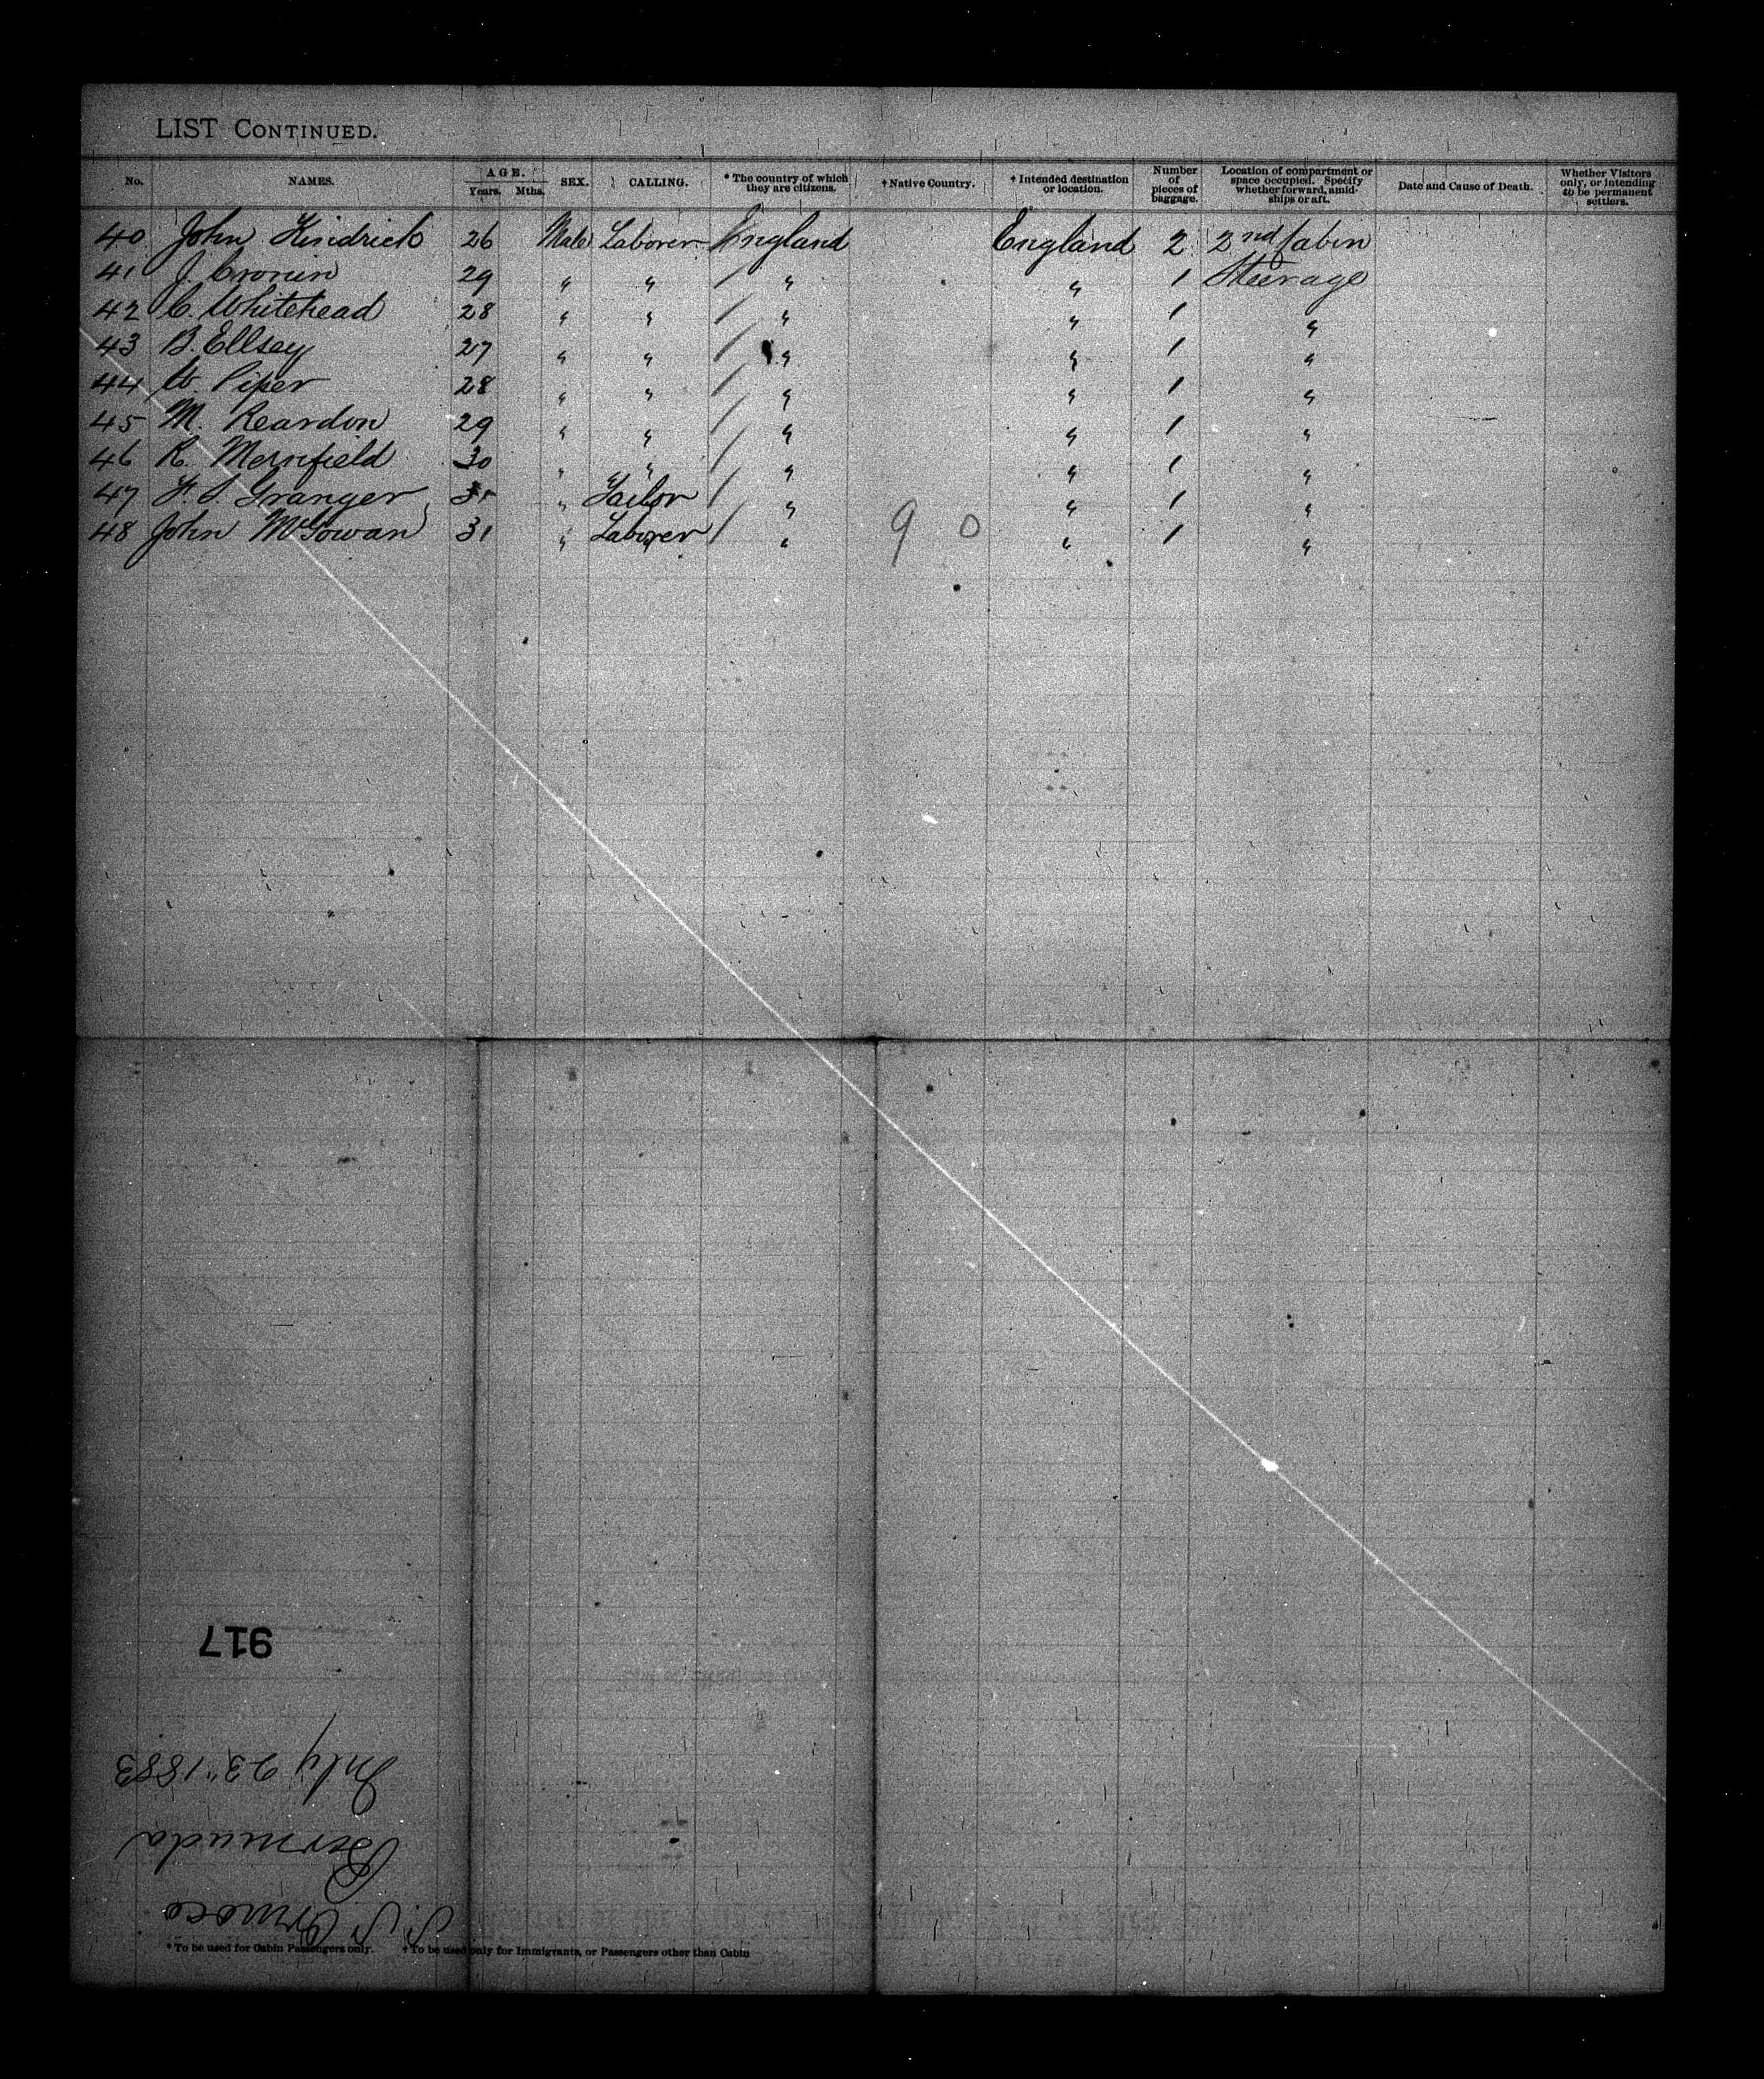 LIST CONTINUED.
No. NAMES. AGE. Years. Mths. SEX. CALLING. * The country of which they are citizens. † Native Country. † Intended destination or location. Number of pieces of baggage. Location of compartment or space occupied. Specify whether forward, amidships or aft. Date and Cause of Death. Whether Visitors only, or intending to be permanent settlers.
40 John Kindrick 26 Male Laborer England England 2 2nd Cabin
41 J. Cronin 29 " " / " " 1 Steerage
42 C. Whitehead 28 " " / " " 1 "
43 B. Ellsey 27 " " / " " 1 "
44 W. Piper 28 " " / " " 1 "
45 M. Reardon 29 " " / " " 1 "
46 R. Merrifield 30 " " / " " 1 "
47 Granger " Tailor / " " 1 "
48 John McGowan 31 " Laborer / " 9 0 " 1 "
917
July 23" 1883
Bermuda
S.S. Orinoco
* To be used for Cabin Passengers only. † To be used only for Immigrants, or Passengers other than Cabin